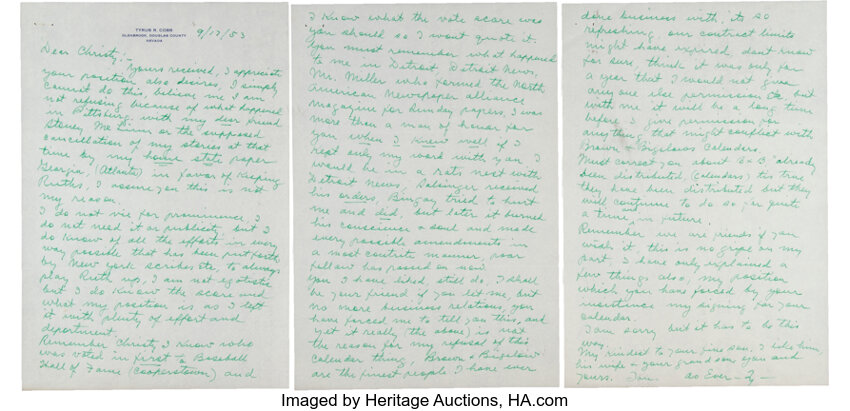 TYRUS R. COBB
GLENBROOK, DOUGLAS COUNTY
NEVADA
9/17/53
Dear Christy:-
Yours received, I appreciate
your position also desires, I simply
cannot do this, believe me I am
not refusing because of what happened
in Pittsburg. with my dear friend
Stoney or the supposed
cancellation of my stories at that
time by my home state paper
Georgia, (Atlanta) in favor of keeping
Ruths, I assure you this is not
my reason.
I do not vie for prominence, I
do not need it or publicity, but I
do know of all the efforts in every
way possible that has been put forth
by New York scribes etc, to always
play Ruth up, I am not egotistic
but I do know the score and
what my position is as I left
it with plenty of effort and
department.
Remember Christy I know who
was voted in first to Baseball
Hall of Fame (Cooperstown) and
I know what the vote score was
you should so I wont quote it.
You must remember what happened
to me in Detroit, Detroit News,
Mr. Miller who formed the North
American Newspaper alliance
magazine for Sunday papers, I was
more than a man of honor for
you when I knew well if I
kept only my work with you I
would be in a rats nest with
Detroit News, Salsinger received
his orders, Bingay tried to hurt
me and did, but later it burned
his conscience & soul and made
every possible amendments in
a most contrite manner, poor
fellow has passed on now
You I have liked, still do, I shall
be your friend if you let me but
no more business relations, you
have forced me to tell you this, and
yet it really (the above) is not
the reason for my refusal of this
Calendar thing, Brown & Bigelow
are the finest people I have ever
done business with, its so
refreshing, our contract limits
might have expired, dont know
for sure, think it was only for
a year that I would not give
any one else permission etc but
with me it will be a long time
before I give permission for
anything that might conflict with
Brown & Bigelows Calenders.
Must correct you about B & B "already
been distributed (calenders) tis true
they have been distributed but they
will continue to do so for quite
a time, in future.
Remember we are friends if you
wish it, this is no gripe on my
part I have only explained a
few things also, my position
which you have forced by your
insistence my signing for your
calendar.
I am sorry but it has to be this
way.
My kindest to your fine son, I like him,
his wife & your grand son, you and
yours. I am as Ever -
Imaged by Heritage Auctions, HA.com